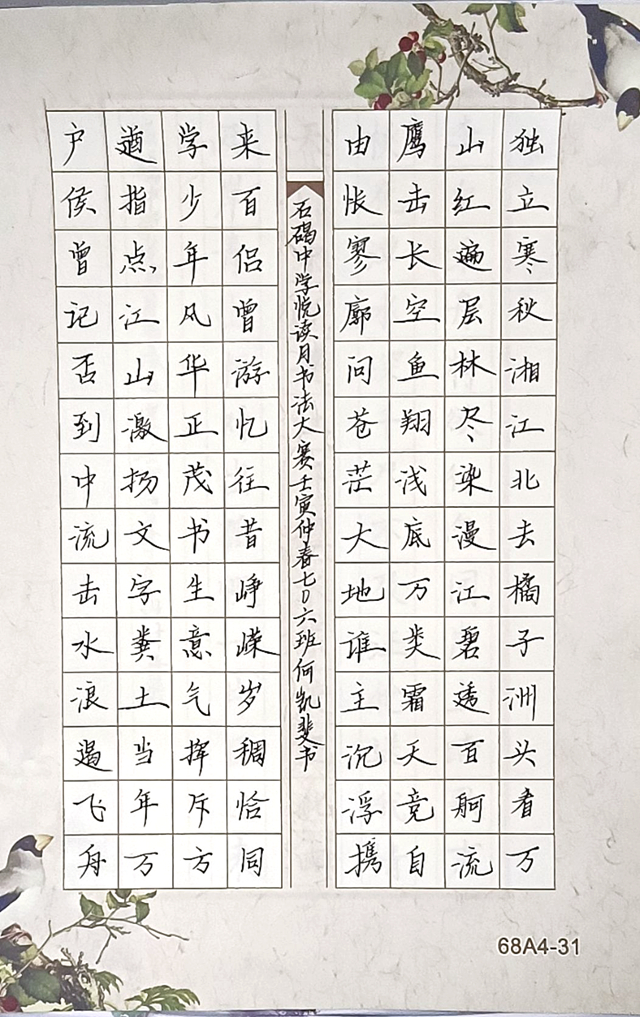 独立寒秋湘江北去橘子洲头看万
山红遍层林尽染漫江碧透百舸流
鹰击长空鱼翔浅底万类霜天竞自
由怅寥廓问苍茫大地谁主沉浮携
来百侣曾游忆往昔峥嵘岁稠恰同
学少年风华正茂书生意气挥斥方
遒指点江山激扬文字粪土当年万
户侯曾记否到中流击水浪遏飞舟
石碣中学悦读月书法大赛壬寅仲春七0六班何凯斐书
68A4-31